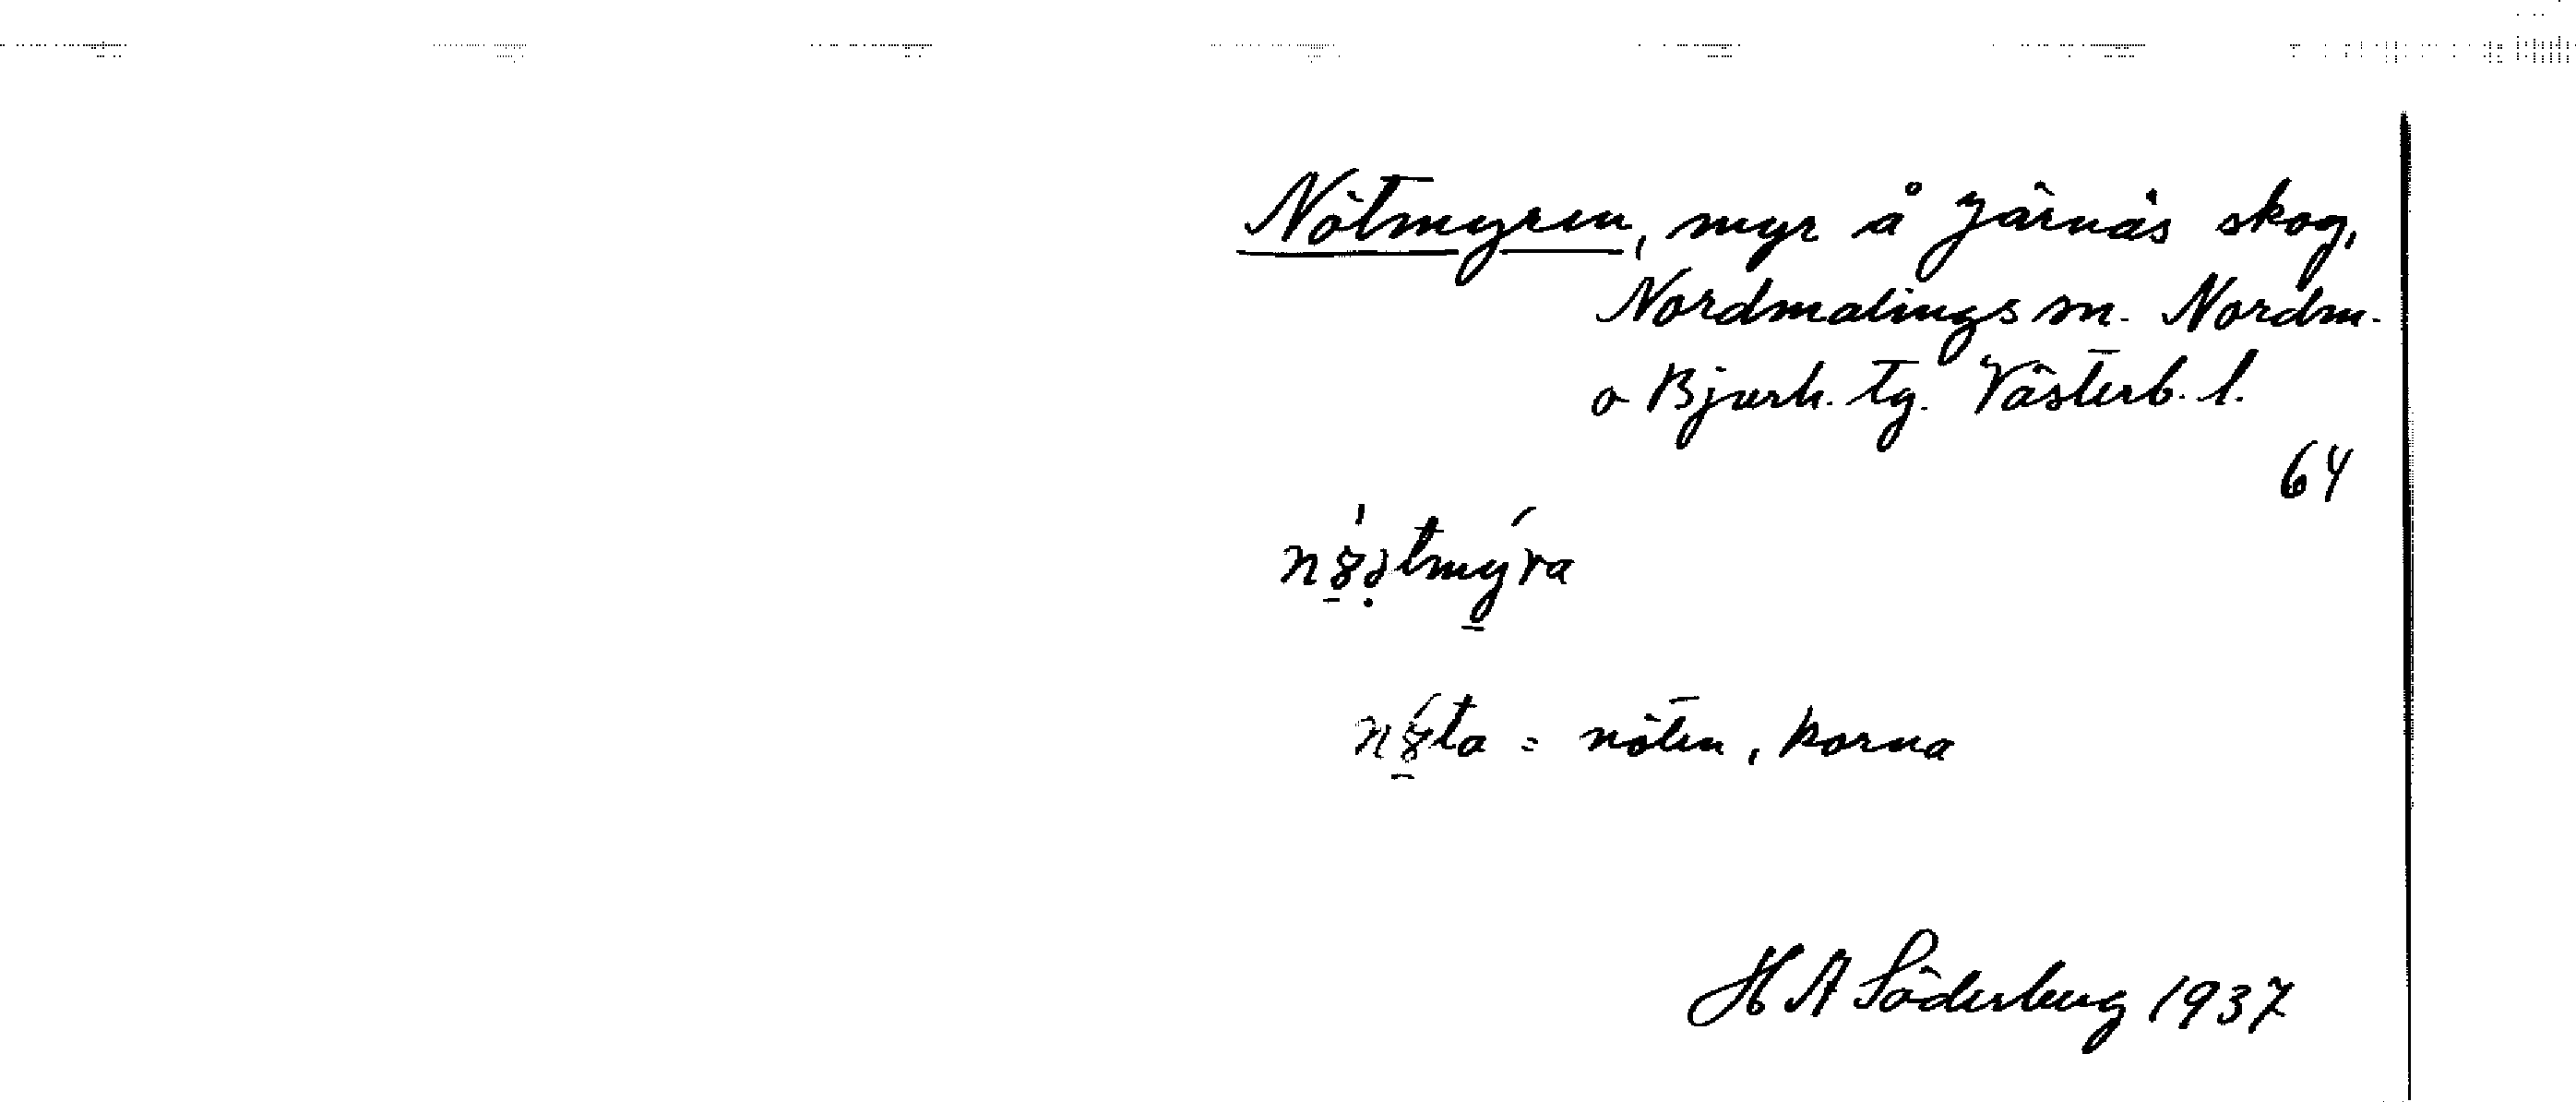 Nötmyren, myr å Järnäs skog,
Nordmalings sn. Nordm.
o Bjurh. tg. Västerb. l.
64
= nöten, korna
H A Söderberg 1937